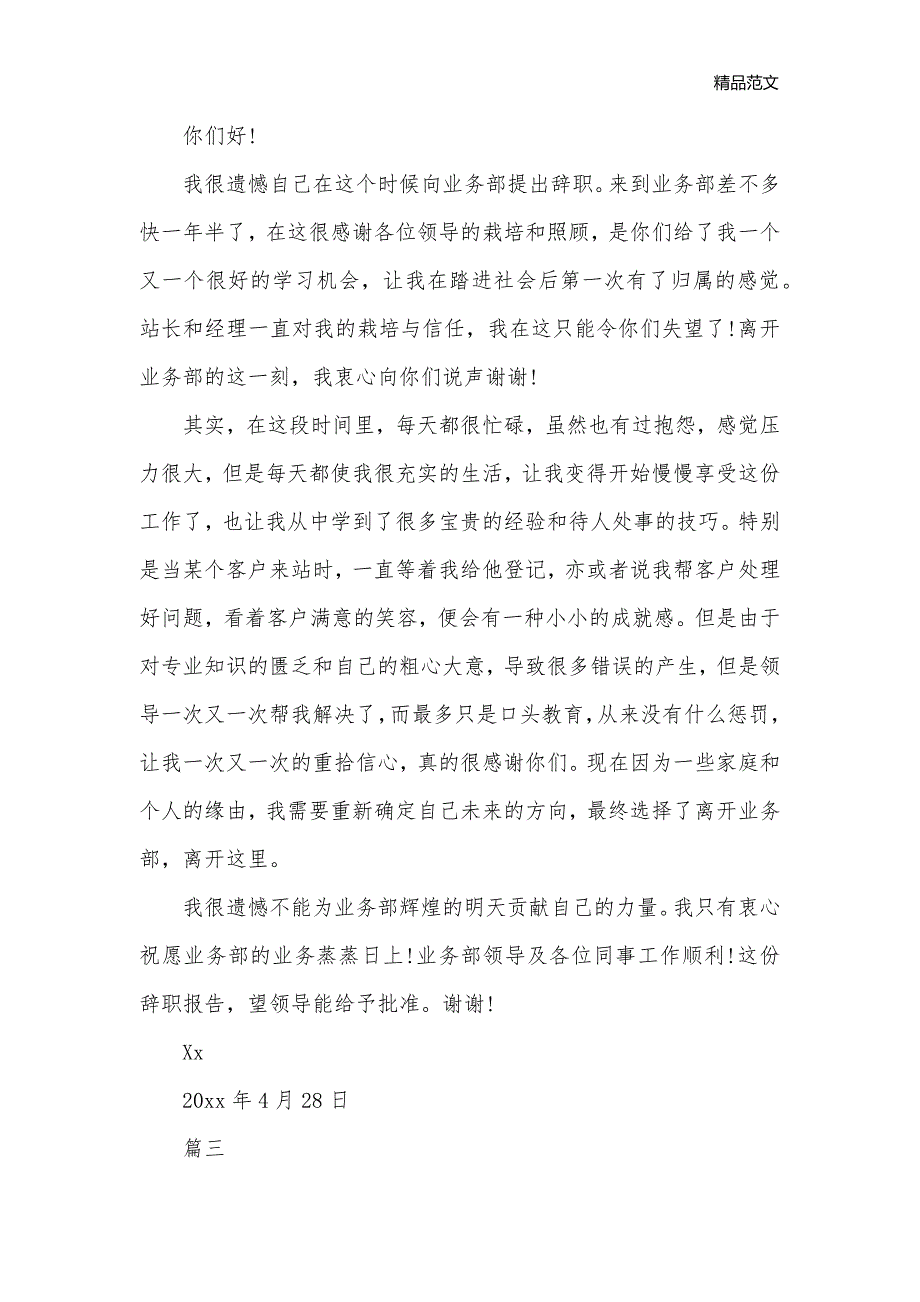 精品范文
你们好!
我很遗憾自己在这个时候向业务部提出辞职。来到业务部差不多
快一年半了，在这很感谢各位领导的栽培和照顾，是你们给了我一个
又一个很好的学习机会，让我在踏进社会后第一次有了归属的感觉。
站长和经理一直对我的栽培与信任，我在这只能令你们失望了!离开
业务部的这一刻，我衷心向你们说声谢谢!
其实，在这段时间里，每天都很忙碌，虽然也有过抱怨，感觉压
力很大，但是每天都使我很充实的生活，让我变得开始慢慢享受这份
工作了，也让我从中学到了很多宝贵的经验和待人处事的技巧。特别
是当某个客户来站时，一直等着我给他登记，亦或者说我帮客户处理
好问题，看着客户满意的笑容，便会有一种小小的成就感。但是由于
对专业知识的匮乏和自己的粗心大意，导致很多错误的产生，但是领
导一次又一次帮我解决了，而最多只是口头教育，从来没有什么惩罚，
让我一次又一次的重拾信心，真的很感谢你们。现在因为一些家庭和
个人的缘由，我需要重新确定自己未来的方向，最终选择了离开业务
部，离开这里。
我很遗憾不能为业务部辉煌的明天贡献自己的力量。我只有衷心
祝愿业务部的业务蒸蒸日上!业务部领导及各位同事工作顺利!这份
辞职报告，望领导能给予批准。谢谢!
Xx
20xx 年 4 月 28 日
篇三